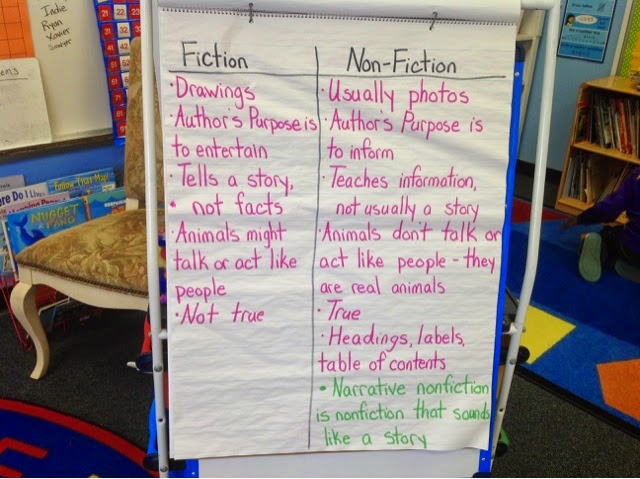 Fiction
·Drawings
·Author's Purpose is
to entertain
·Tells a story,
· not facts
·Animals might
talk or act like
people
·Not true
Non-Fiction
·Usually photos
·Author's Purpose is
to inform
·Teaches information,
not usually a story
·Animals don't talk or
act like people - they
are real animals
·True
·Headings, labels,
table of contents
• Narrative nonfiction
is nonfiction that sounds
like a story
Indie
Ryan
Xavier
Follow That Map!
ere Do I Live?
NUGGET
& FANG